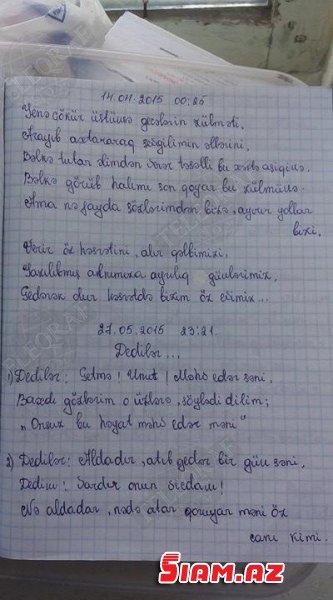 14.04.2015 00:25
Yenə çökür üstümə gecələrin zülməti,
Arayıb axtararaq sevgilimin əllərini,
Bəlkə tutar əlimdən verər təsəlli bu xəstə aşiqinə,
Bəlkə görüb halımı son qoyar bu zülmünə.
Ama nə fayda sözlərimdən bizə, ayırır yollar
bizi,
Verir öz həsrətini, alır qəlbimizi,
Yazılıbmış alnımıza ayrılıq günlərimiz,
Gedərək olur həsrətdə bizim öz evimiz...
27.05.2015 23:21
Dedilər...
1) Dedilər: Getmə! Unut! Məhv edər səni,
Baxdı gözlərim o üzlərə, söylədi dilim;
„Onsuz bu həyat məhv edər məni"
2) Dedilər: Aldadır, atıb gedər bir gün səni,
Dedim! Vardır onun vicdanı!
Nə aldadar, nədə atar qoruyar məni öz
canı kimi.
SIAM.AZ